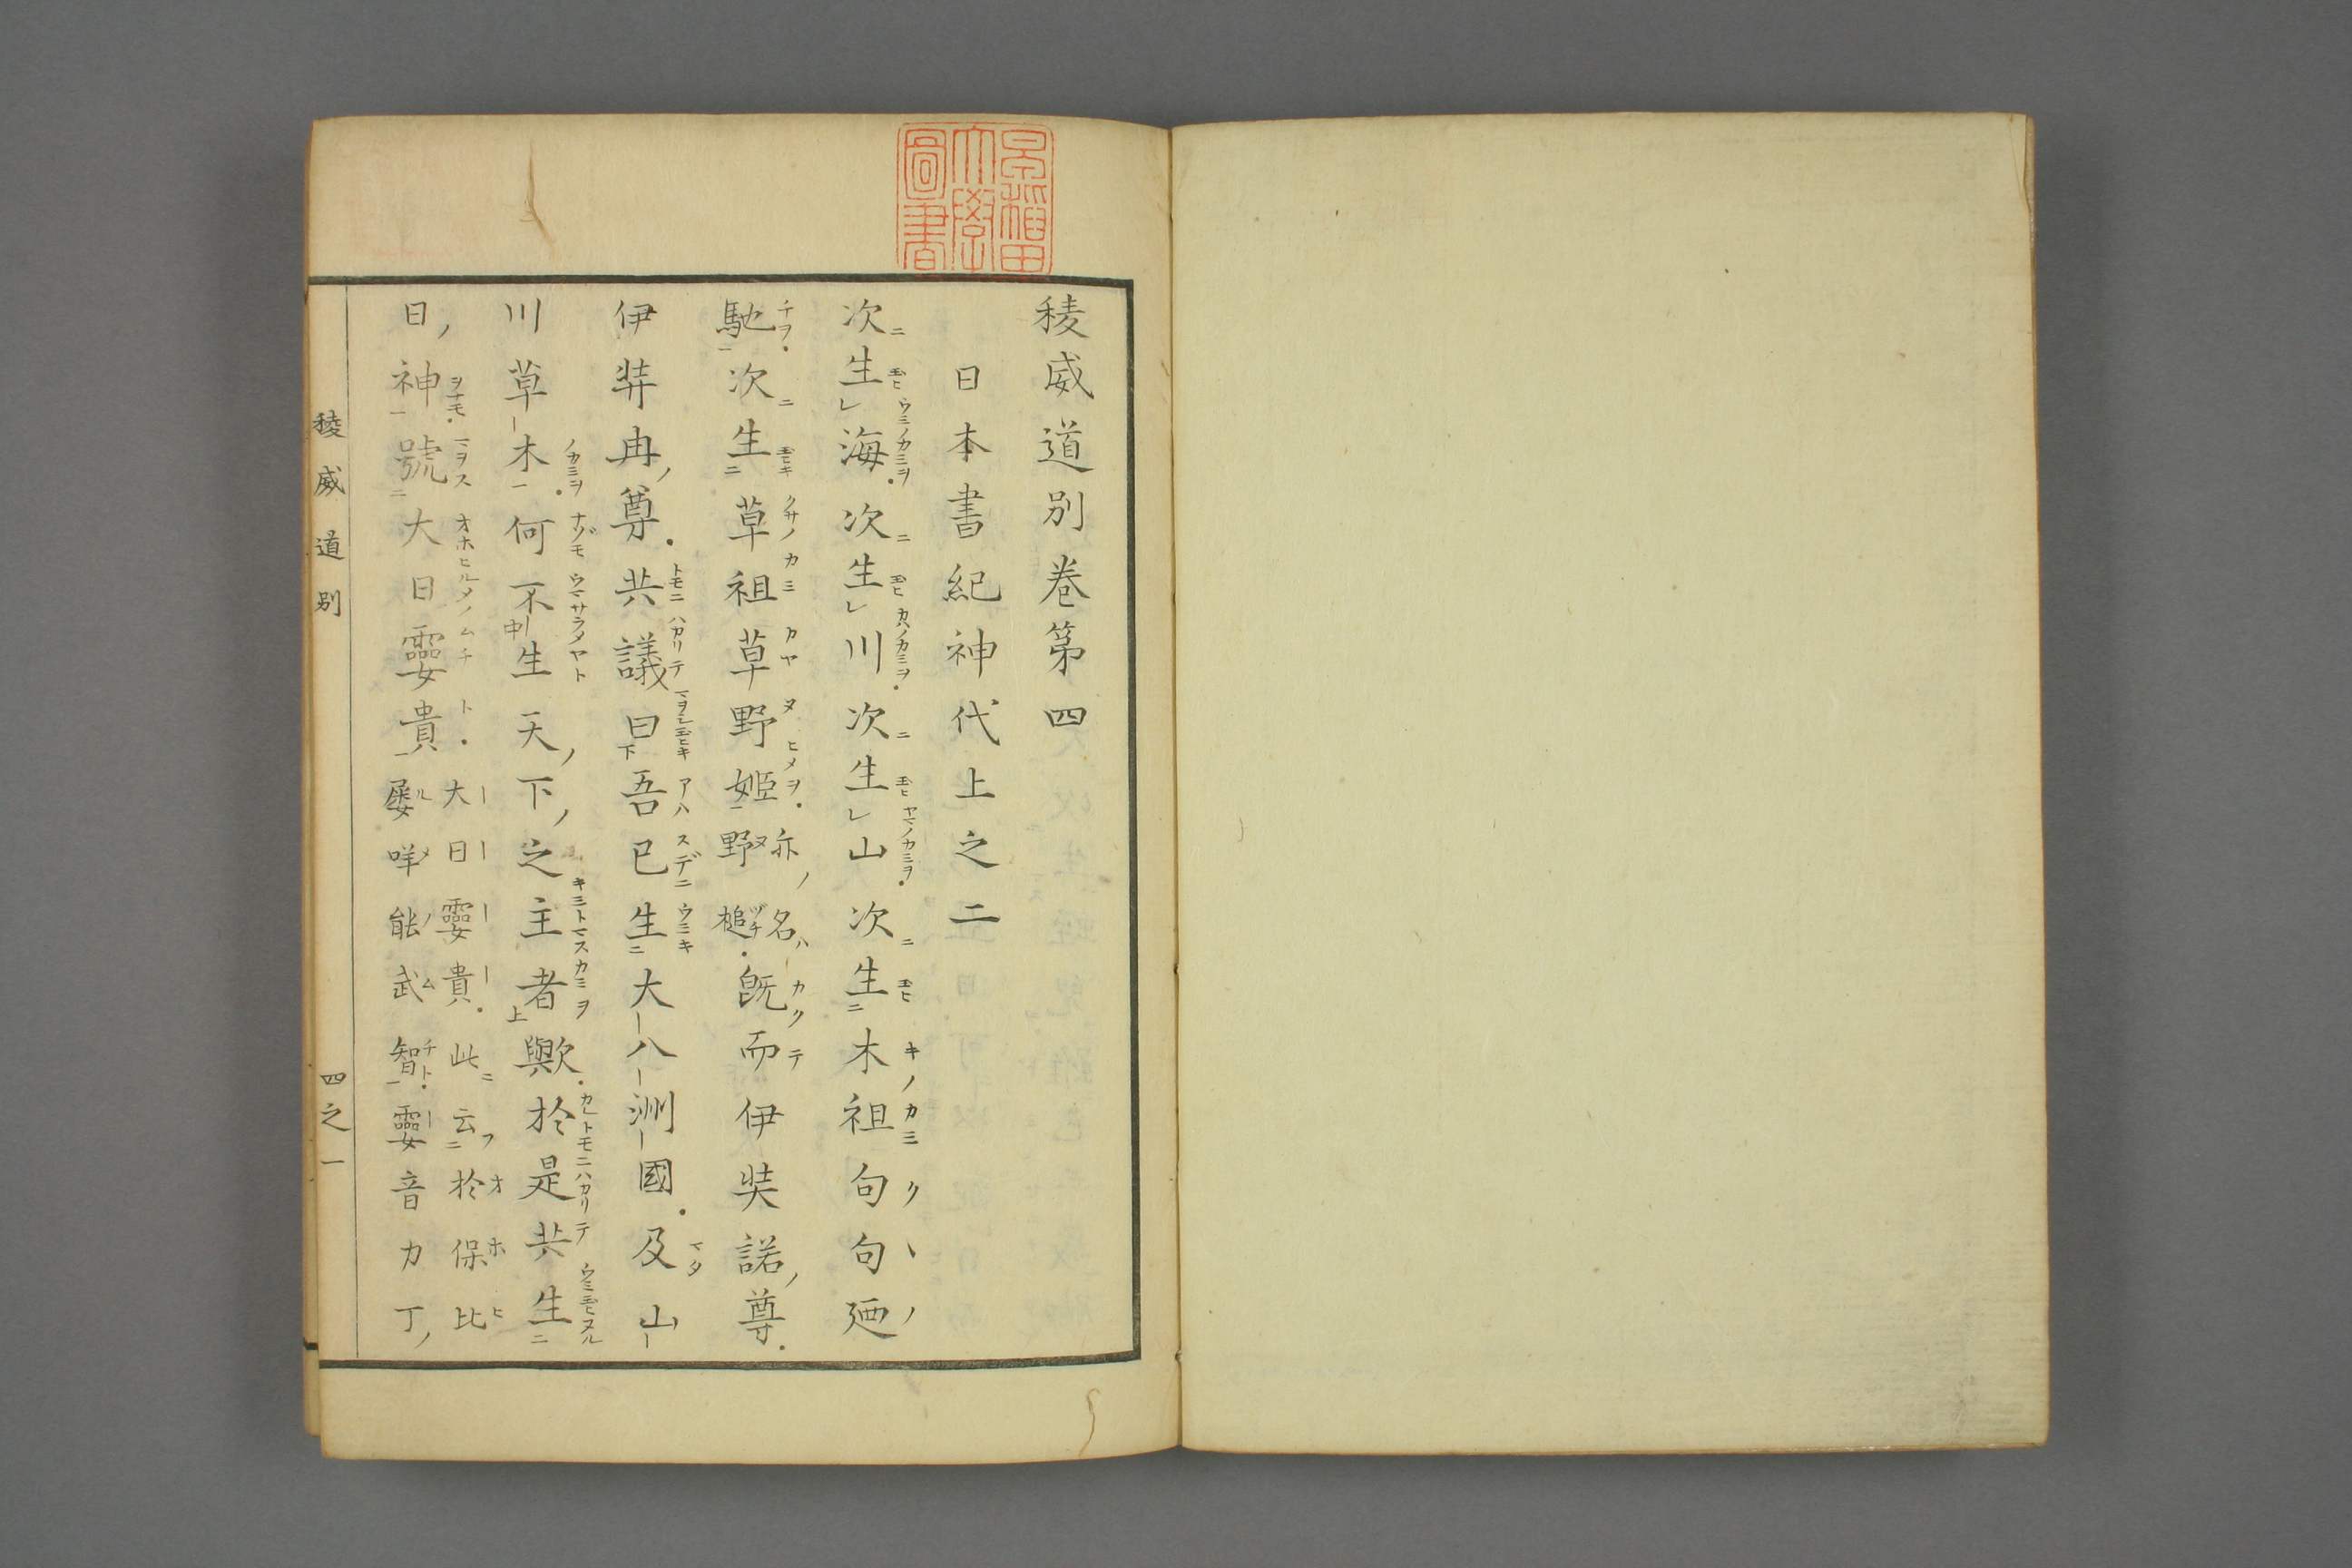 早稲田大學圖書
稜威道別巻第四
日本書紀神代上之二
次生海次生川次生山次生木祖句句廼
馳次生草祖草野姫亦名野槌既而伊奘諾尊
伊弉冉尊共議曰吾已生大八洲國及山
川草木何不生天下之主者歟於是共生
日神號大日孁貴大日孁貴此云於保比
屡咩能武智孁音力丁
稜威道別
四之一